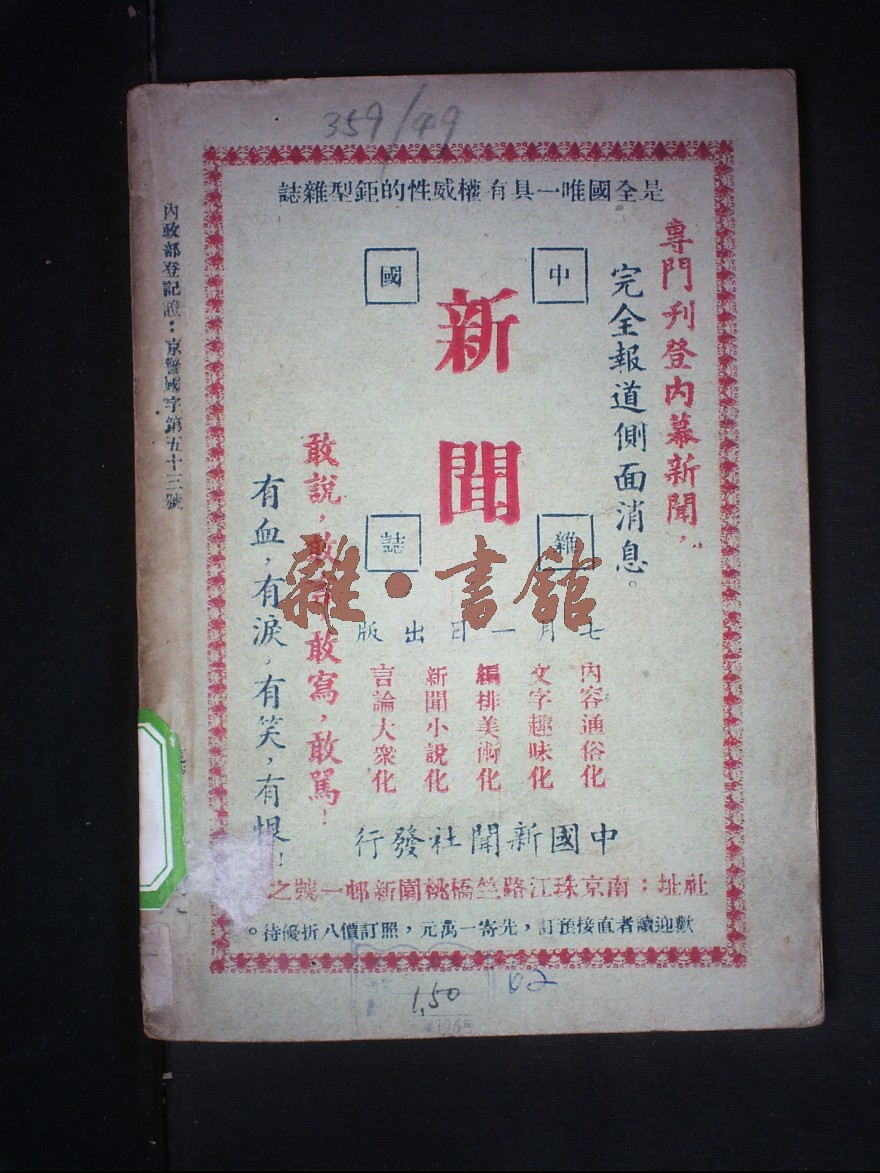 359/49
是全國唯一具有權威性的鉅型雜誌
專門刋登內幕新聞，
完全報道側面消息。
中國
新聞
雜誌
七月一日出版
內容通俗化
文字趣味化
編排美術化
新聞小說化
言論大衆化
敢說，敢
敢寫，敢駡！
有血，有淚，有笑，有恨！
中國新聞社發行
社址：南京珠江路竺橋桃園新邨一號之
歡迎讀者直接預訂，先寄一萬元，照訂價八折優待。
內政部登記證：京警國字第五十三號
雜·書館
1,50
02